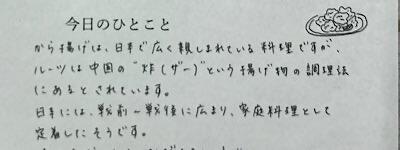 今日のひとこと
から揚げは、日本で広く親しまれている料理ですが、
ルーツは中国の"炸(ザー)"という揚げ物の調理法
にあるとされています。
日本には、戦前〜戦後に広まり、家庭料理として
定着したそうです。